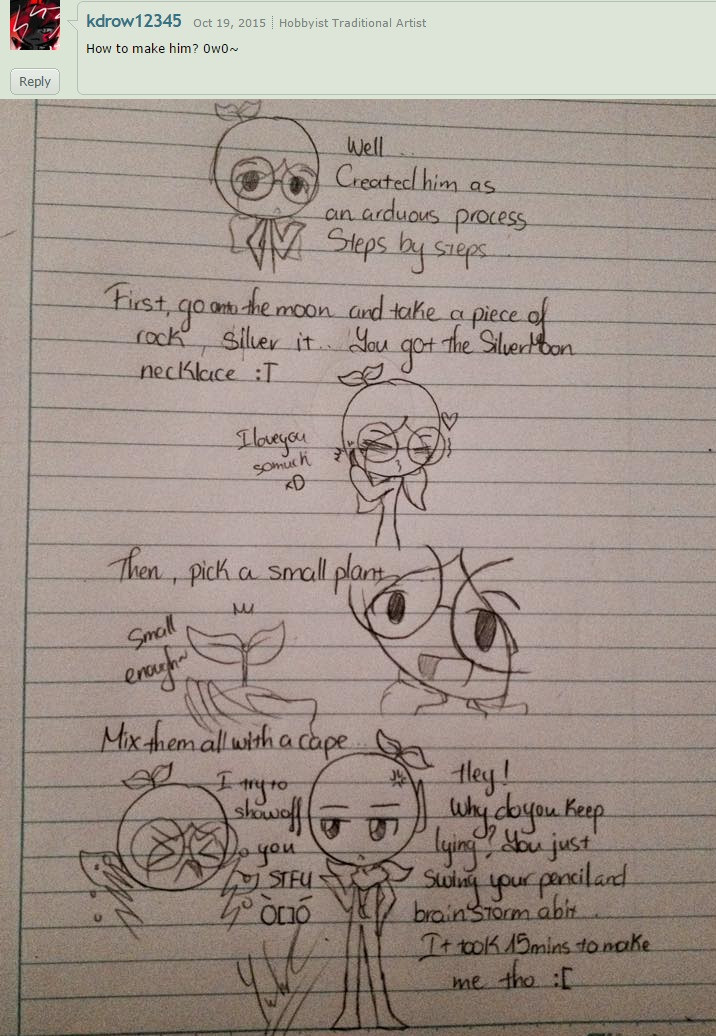 kdrow12345 Oct 19, 2015 Hobbyist Traditional Artist
How to make him? 0w0~
Reply
Well ...
Created him as
an arduous process
Steps by steps...
First, go onto the moon and take a piece of
rock, silver it... You got the SilverMoon
necklace :T
I love you
so much
<D
Then, pick a small plant
Small
enough~
Mix them all with a cape...
I try to
show off
you
STFU
Hey!
Why do you keep
lying? You just
swing your pencil and
brainstorm a bit...
It took 15mins to make
me tho :[